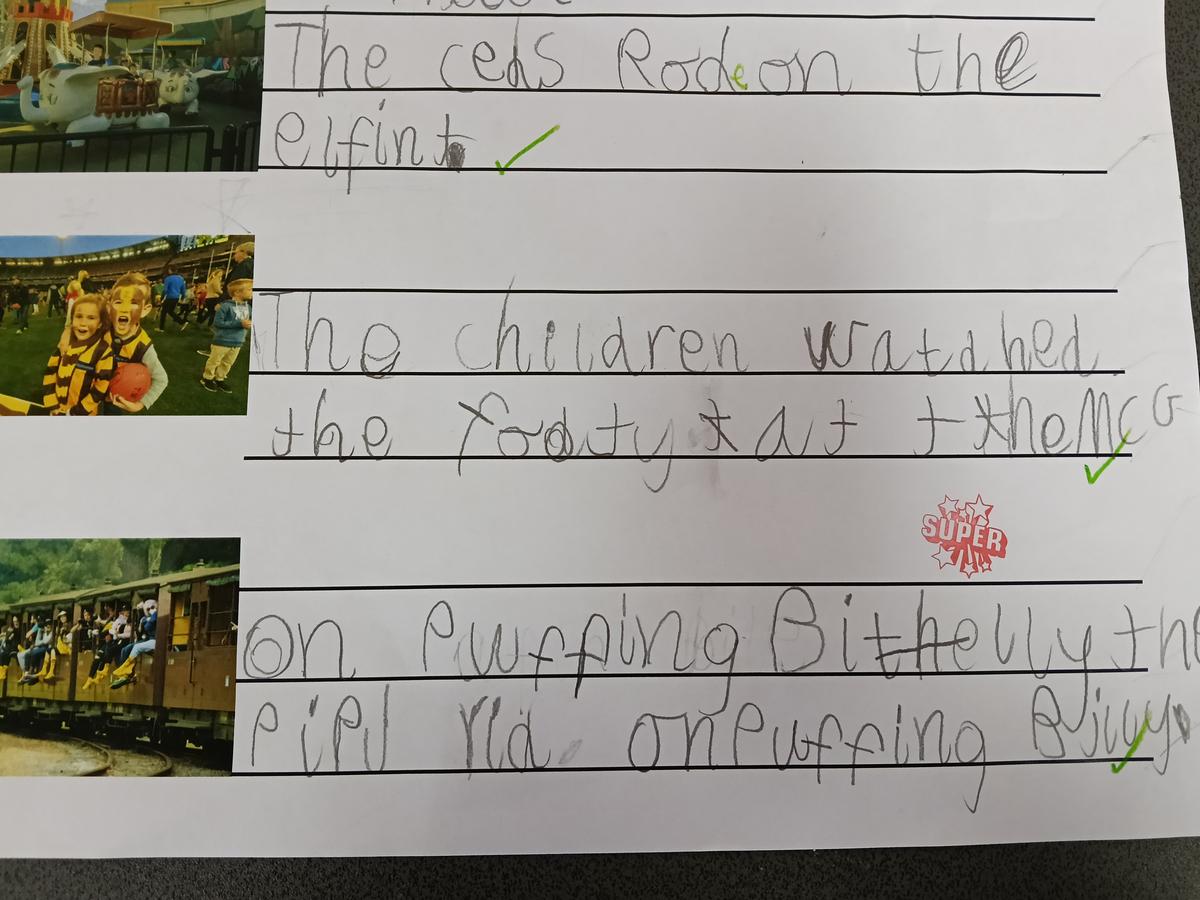 The ceds Rodeon the
elfint
The children watdhed
the footy t at t the MCG
SUPER
on Puffing Bithelly the
PiPl rid on Puffing Billy.